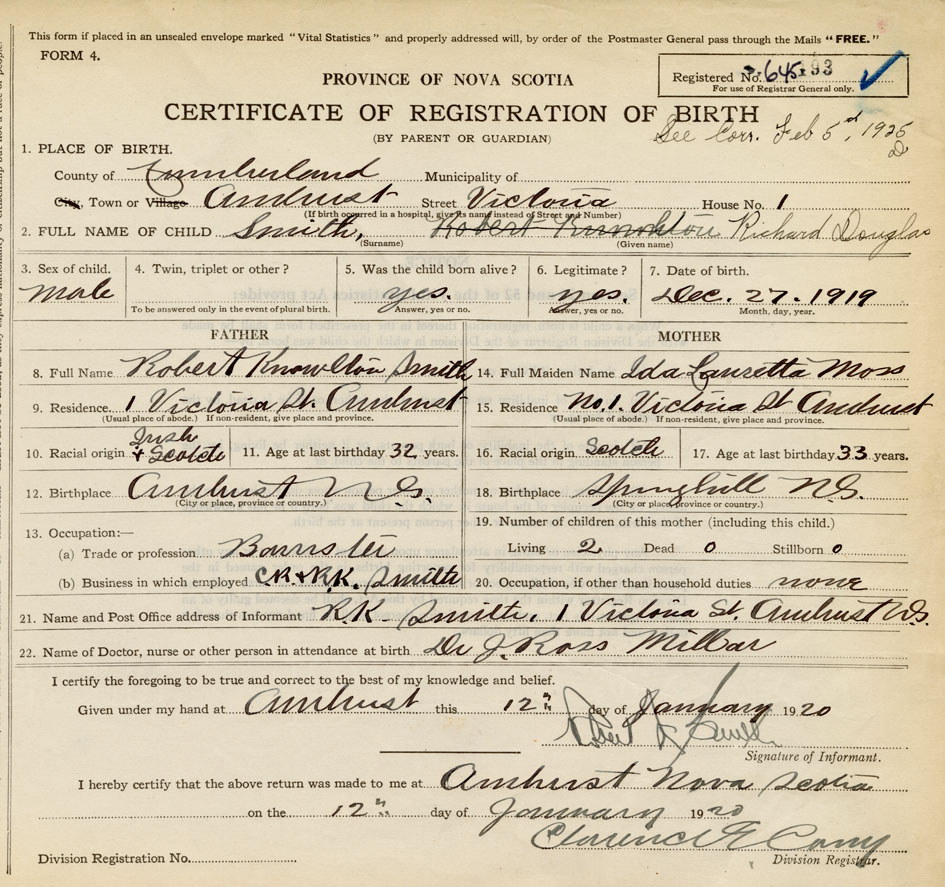 This form if placed in an unsealed envelope marked "Vital Statistics" and properly addressed will, by order of the Postmaster General pass through the Mails "FREE."
FORM 4.
PROVINCE OF NOVA SCOTIA
Registered No. 645 93
For use of Registrar General only.
CERTIFICATE OF REGISTRATION OF BIRTH
(BY PARENT OR GUARDIAN)
See Corr. Feb 5th, 1925
1. PLACE OF BIRTH.
County of Cumberland Municipality of
City, Town or Village Amherst Street Victoria House No. 1
(If birth occurred in a hospital, give its name instead of Street and Number)
2. FULL NAME OF CHILD Smith, Robert Knowlton Richard Douglas
(Surname) (Given name)
3. Sex of child. 4. Twin, triplet or other? 5. Was the child born alive? 6. Legitimate? 7. Date of birth.
Male yes. yes. Dec. 27. 1919
To be answered only in the event of plural birth. Answer, yes or no. Answer, yes or no. Month, day, year.
FATHER MOTHER
8. Full Name Robert Knowlton Smith 14. Full Maiden Name Ida Lauretta Moss
9. Residence 1 Victoria St. Amherst 15. Residence No. 1. Victoria St Amherst
(Usual place of abode. If non-resident, give place and province. (Usual place of abode. If non-resident, give place and province.
10. Racial origin Irish & Scotch 11. Age at last birthday 32 years. 16. Racial origin Scotch 17. Age at last birthday 33 years.
12. Birthplace Amherst N.S. 18. Birthplace Springhill N.S.
(City or place, province or country.) (City or place, province or country.)
13. Occupation:— 19. Number of children of this mother (including this child.)
(a) Trade or profession Barrister Living 2 Dead 0 Stillborn 0
(b) Business in which employed C.R. & R.K. Smith 20. Occupation, if other than household duties none
21. Name and Post Office address of Informant R.K. Smith, 1 Victoria St. Amherst N.S.
22. Name of Doctor, nurse or other person in attendance at birth Dr J. Ross Millar
I certify the foregoing to be true and correct to the best of my knowledge and belief.
Given under my hand at Amherst this 12th day of January 1920
Robert K Smith
Signature of Informant.
I hereby certify that the above return was made to me at Amherst Nova Scotia
on the 12th day of January 1920
Clarence
Division Registration No. Division Registrar.